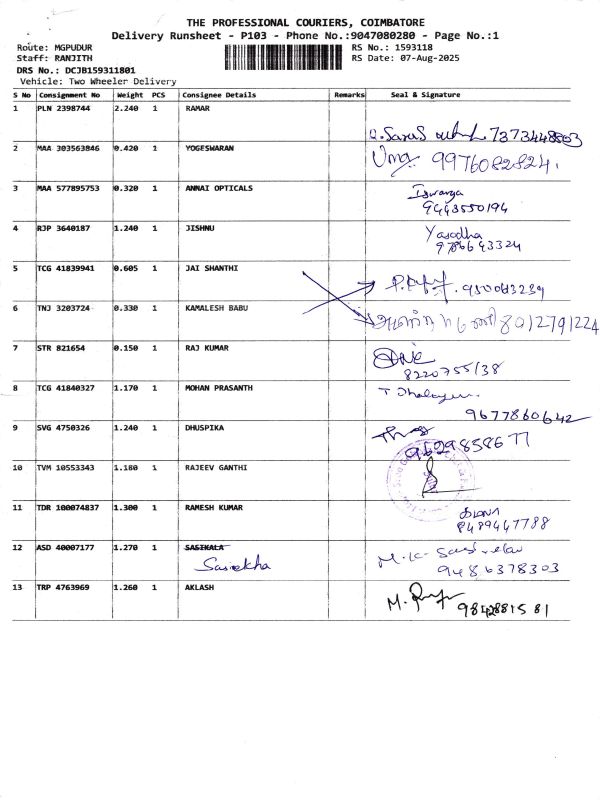 THE PROFESSIONAL COURIERS, COIMBATORE
Delivery Runsheet - P103 - Phone No.:9047080280 - Page No.:1
Route: MGPUDUR RS No.: 1593118
Staff: RANJITH RS Date: 07-Aug-2025
DRS No.: DCJB159311801
Vehicle: Two Wheeler Delivery
S No Consignment No Weight PCS Consignee Details Remarks Seal & Signature
1 PLN 2398744 2.240 1 RAMAR
2 MAA 303563846 0.420 1 YOGESWARAN Uma 9976082824.
3 MAA 577895753 0.320 1 ANNAI OPTICALS Iswarya
9443550194
4 RJP 3640187 1.240 1 JISHNU Yasodha
9786643324
5 TCG 41839941 0.605 1 JAI SHANTHI
6 TNJ 3203724 0.330 1 KAMALESH BABU 8012791224
7 STR 821654 0.150 1 RAJ KUMAR
8220755138
8 TCG 41840327 1.170 1 MOHAN PRASANTH
9677860642
9 SVG 4750326 1.240 1 DHUSPIKA
9629858677
10 TVM 10553343 1.180 1 RAJEEV GANTHI
11 TDR 100074837 1.300 1 RAMESH KUMAR
8489447788
12 ASD 40007177 1.270 1 SASIKALA
Sasirekha 9486378303
13 TRP 4763969 1.260 1 AKLASH 9842881581